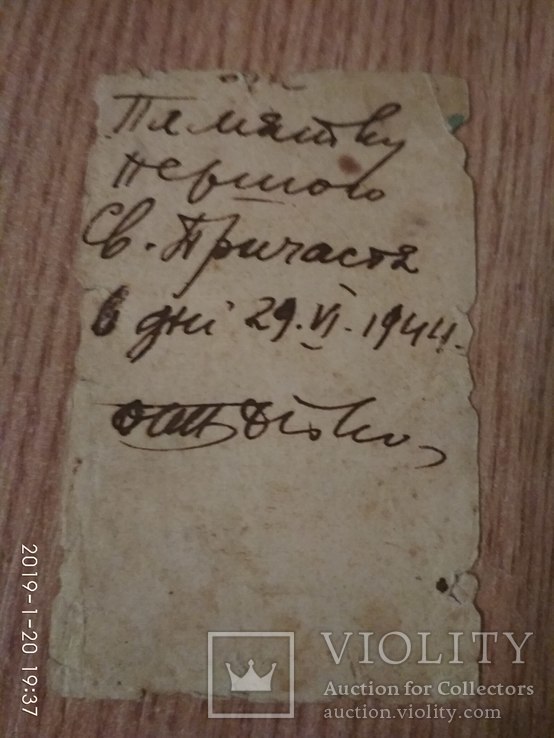 Памятку
першого
Св. Причастя
в дні 29.VI.1944.
2019-1-20 19:37
VIOLITY
Auction for Collectors
auction.violity.com